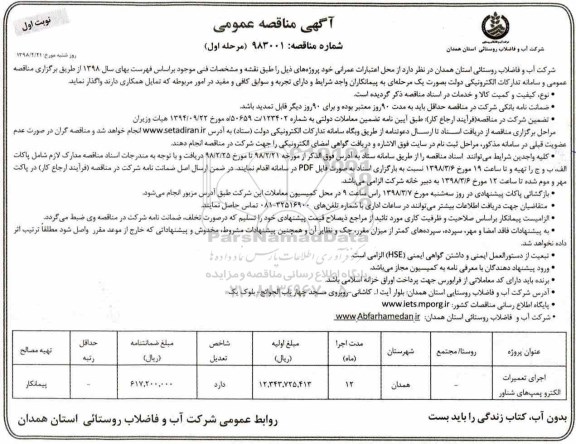 نوبت اول
آگهی مناقصه عمومی
شماره مناقصه: ۹۸۳۰۰۱ (مرحله اول)
شرکت آب و فاضلاب روستائی استان همدان
روز شنبه مورخ: ۱۳۹۸/۲/۲۱
شرکت آب و فاضلاب روستائی استان همدان در نظر دارد از محل اعتبارات عمرانی خود پروژه‌های ذیل را طبق نقشه و مشخصات فنی موجود براساس فهرست بهای سال ۱۳۹۸ از طریق برگزاری مناقصه
عمومی و سامانه تدارکات الکترونیکی دولت بصورت یک مرحله‌ای به پیمانکاران واجد شرایط و دارای تجربه و سوابق کافی و مفید در امور مربوطه که تمایل همکاری دارند واگذار نماید.
• نوع، کیفیت و کمیت کالا و خدمات در اسناد مناقصه ذکر گردیده است.
• ضمانت نامه بانکی شرکت در مناقصه حداقل باید به مدت ۹۰روز معتبر بوده و برای ۹۰روز دیگر قابل تمدید باشد.
• تضمین شرکت در مناقصه(فرآیند ارجاع کار): طبق آیین نامه تضمین معاملات دولتی به شماره ۱۲۳۴۰۲/ت۵۰۶۵۹ه مورخ ۱۳۹۴/۰۹/۲۲ هیات وزیران
مراحل برگزاری مناقصه از دریافت اسناد تا ارسال دعوتنامه از طریق وبگاه سامانه تدارکات الکترونیکی دولت (ستاد) به آدرس www.setadiran.ir انجام خواهد شد و مناقصه گران در صورت عدم
عضویت قبلی در سامانه مذکور، مراحل ثبت نام در سایت فوق الاشاره و دریافت گواهی امضای الکترونیکی را جهت شرکت در مناقصه انجام دهند.
• کلیه واجدین شرایط می‌توانند اسناد مناقصه را از طریق سامانه ستاد به آدرس فوق الذکر از مورخه ۹۸/۲/۲۱ تا مورخ ۹۸/۲/۲۵ دریافت و با توجه به مندرجات اسناد مناقصه مدارک لازم شامل پاکات
الف، ب و ج را تهیه و تا ساعت ۱۹ مورخ ۱۳۹۸/۳/۶ نسبت به بارگزاری اسناد به صورت فایل PDF در سامانه اقدام نمایند. در ضمن ارسال اصل ضمانت نامه شرکت در مناقصه (فرآیند ارجاع کار) در پاکت
مهر و موم شده تا ساعت ۱۲ مورخ ۱۳۹۸/۳/۶ به دبیر خانه شرکت الزامی می‌باشد.
• بازگشائی پاکات پیشنهادی در روز سه‌شنبه مورخ ۱۳۹۸/۳/۷ راس ساعت ۹ در محل کمیسیون معاملات این شرکت طبق آدرس مزبور انجام می‌شود.
• متقاضیان جهت دریافت اطلاعات بیشتر می‌توانند در ساعات اداری با شماره تلفن‌های ۳۲۵۱۶۹۰۰-۰۸۱ تماس حاصل نمایند.
• الزامیست پیمانکار براساس صلاحیت و ظرفیت کاری مورد تائید از مراجع ذیصلاح قیمت پیشنهادی خود را تسلیم که درصورت تخلف، ضمانت نامه شرکت در مناقصه وی ضبط می‌گردد.
• به پیشنهادات فاقد امضا و مهر، سپرده، سپرده‌های کمتر از میزان مقرر، چک و نظایر آن و همچنین پیشنهادات مشروط، مخدوش و پیشنهاداتی که خارج از موعد مقرر واصل شود مطلقا ترتیب اثر
داده نخواهد شد.
• تبعیت از دستورالعمل ایمنی و داشتن گواهی ایمنی (HSE) الزامی است.
• ورود پیشنهاد دهندگان با معرفی نامه به کمیسیون مجاز می‌باشد.
• برنده باید دارای کد معاملاتی از فرابورس جهت پرداخت اوراق خزانه اسلامی باشد.
• آدرس شرکت آب و فاضلاب روستایی استان همدان: بلوار آیت ا.. کاشانی-روبروی مسجد چهار باب الحوائج-بلوک یک.
• پایگاه اطلاع رسانی مناقصات کشور: www.iets.mporg.ir
• شرکت آب و فاضلاب روستائی استان همدان: www.Abfarhamedan.ir
ParsNamadData
پایگاه اطلاع رسانی مناقصه و مزایده
عنوان پروژه | روستا/مجتمع | شهرستان | مدت اجرا (ماه) | مبلغ اولیه (ریال) | شاخص تعدیل | مبلغ ضمانتنامه (ریال) | حداقل رتبه | تهیه مصالح
اجرای تعمیرات الکترو پمپ‌های شناور | - | همدان | ۱۲ | ۱۲,۳۴۳,۷۲۵,۴۱۳ | دارد | ۶۱۷,۲۰۰,۰۰۰ | - | پیمانکار
بدون آب، کتاب زندگی را باید بست
روابط عمومی شرکت آب و فاضلاب روستائی استان همدان